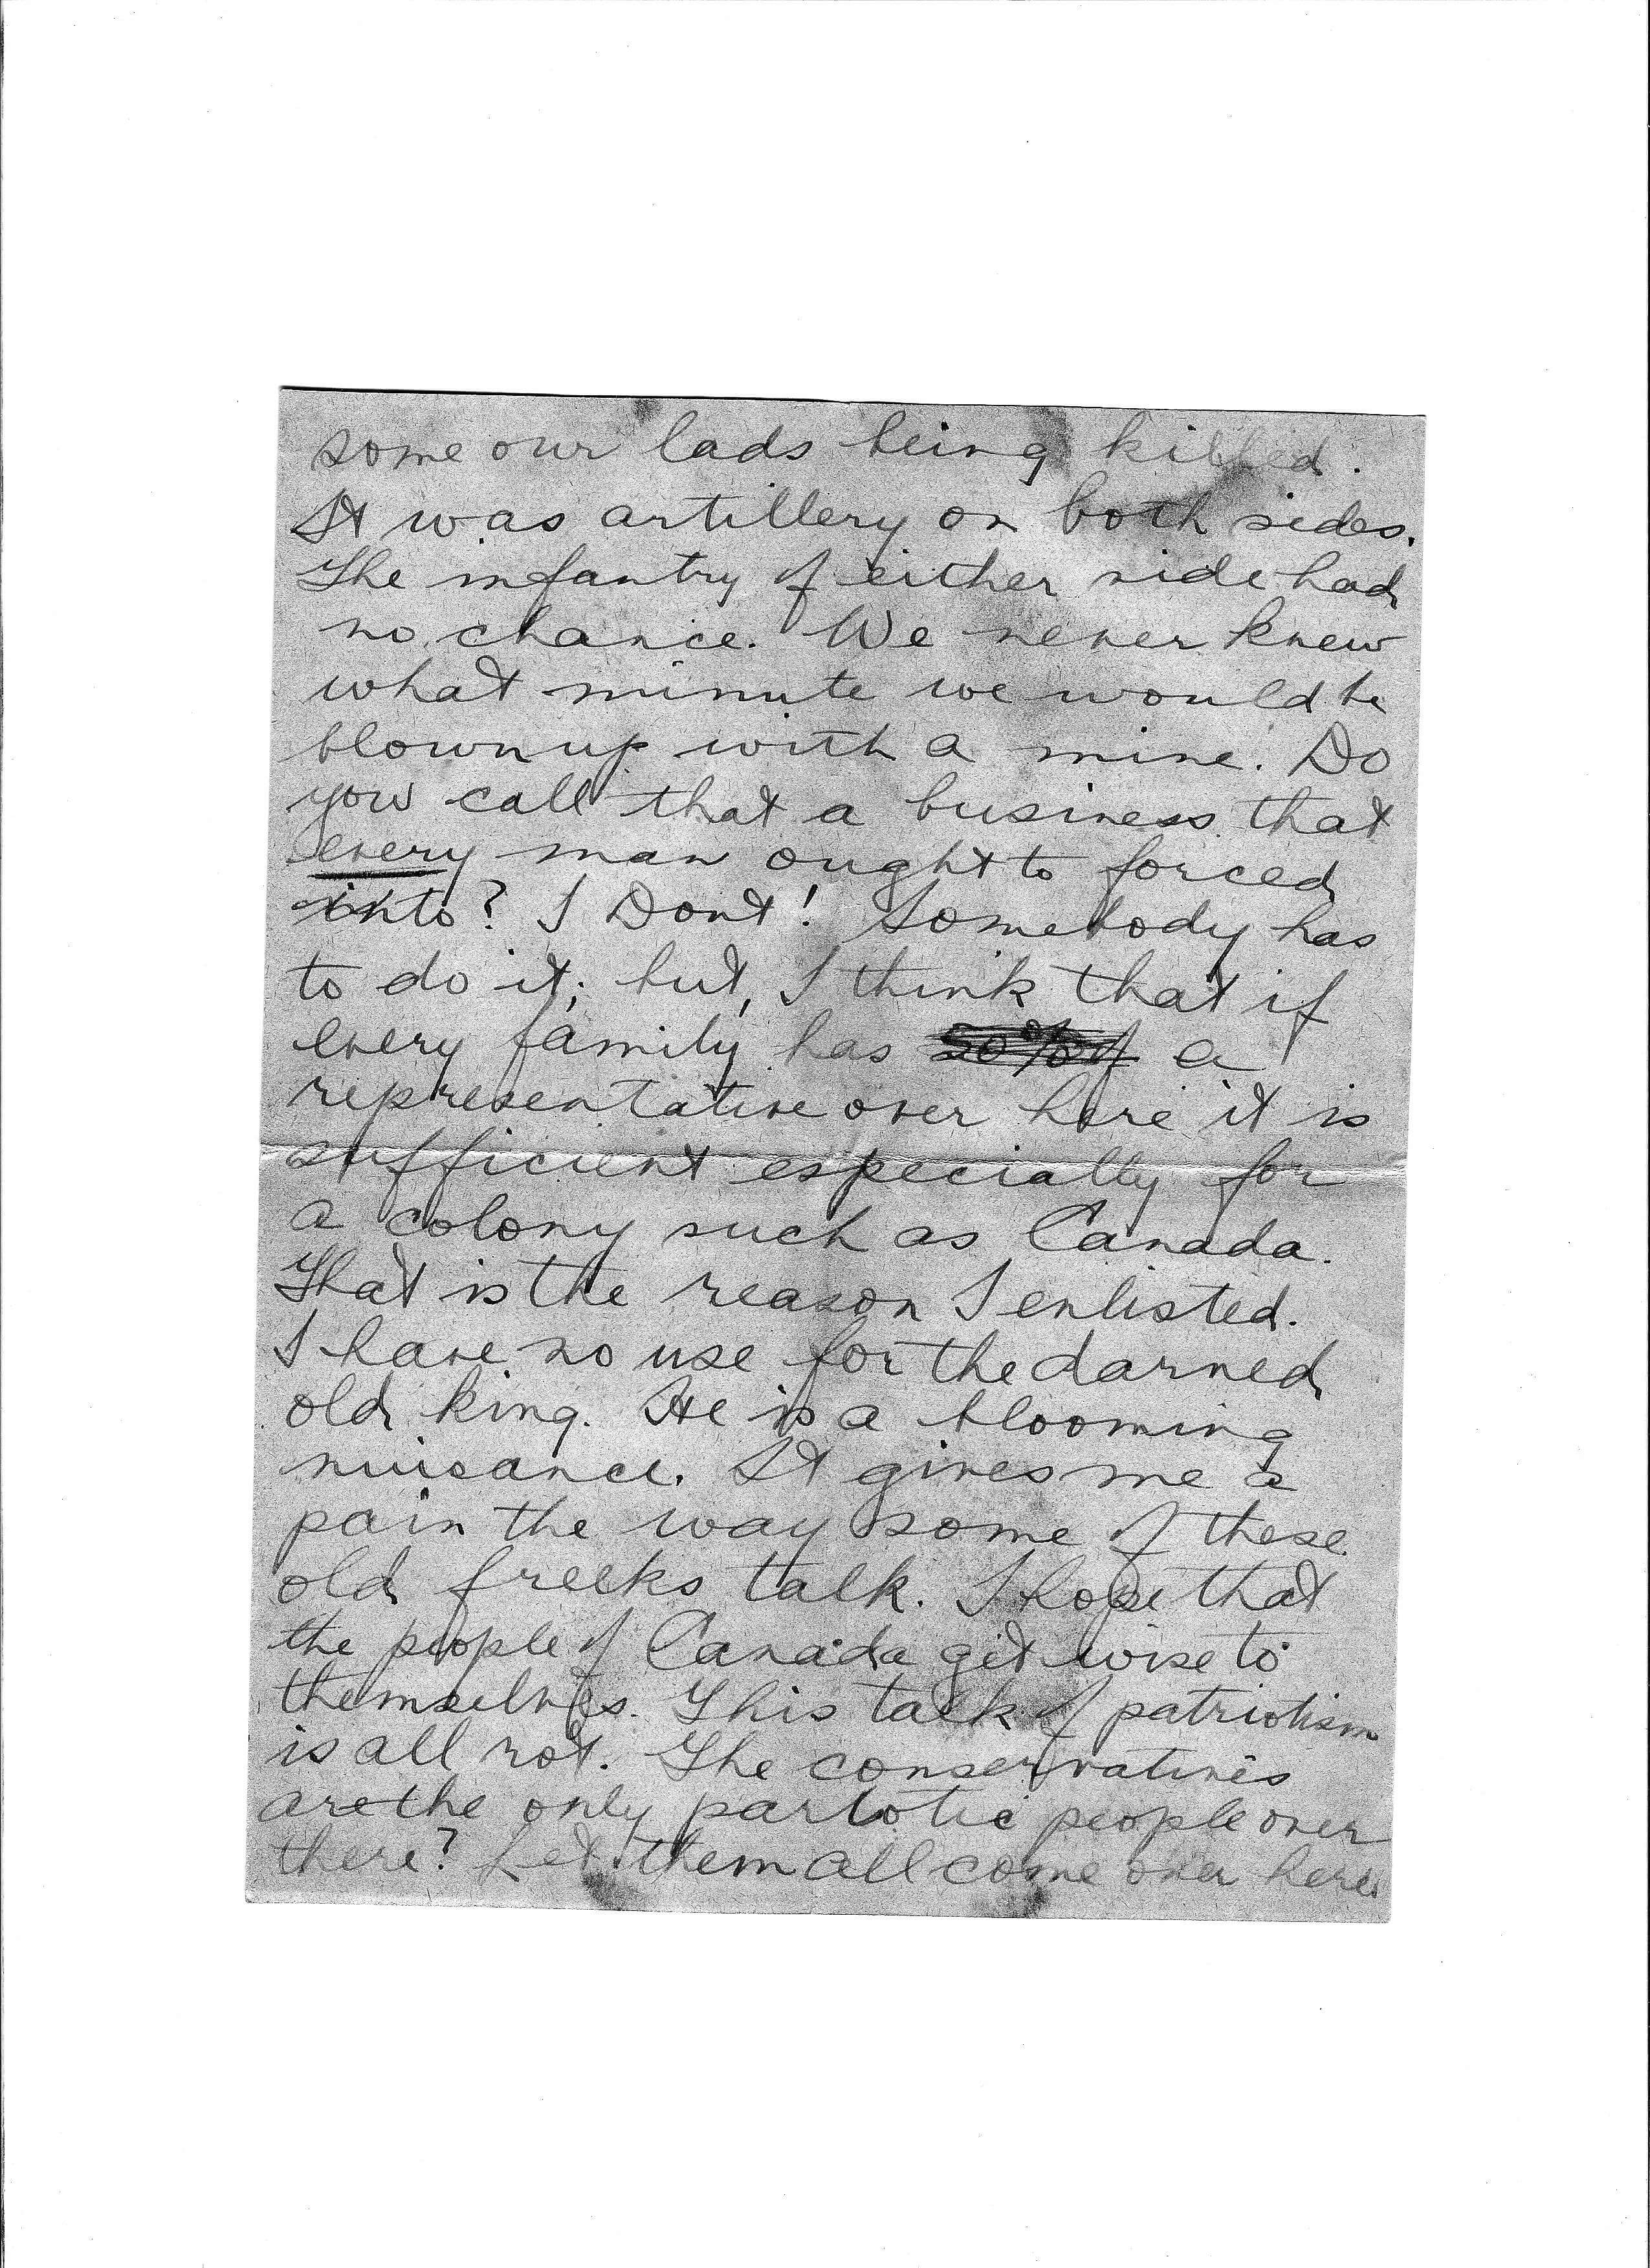 some our lads being killed.
It was artillery on both sides.
The infantry of either side had
no chance. We never knew
what minute we would be
blown up with a mine. Do
you call that a business that
every man ought to forced
into? I Dont! Somebody has
to do it; but, I think that if
every family has a
representative over here it is
sufficient especially for
a colony such as Canada.
That is the reason I enlisted.
I have no use for the darned
old king. He is a blooming
nuisance. It gives me a
pain the way some of these
old freeks talk. I hope that
the people of Canada get wise to
themselves. This talk of patriotism
is all rot. The conservatives
are the only partotic people over
there? Let them all come over here.